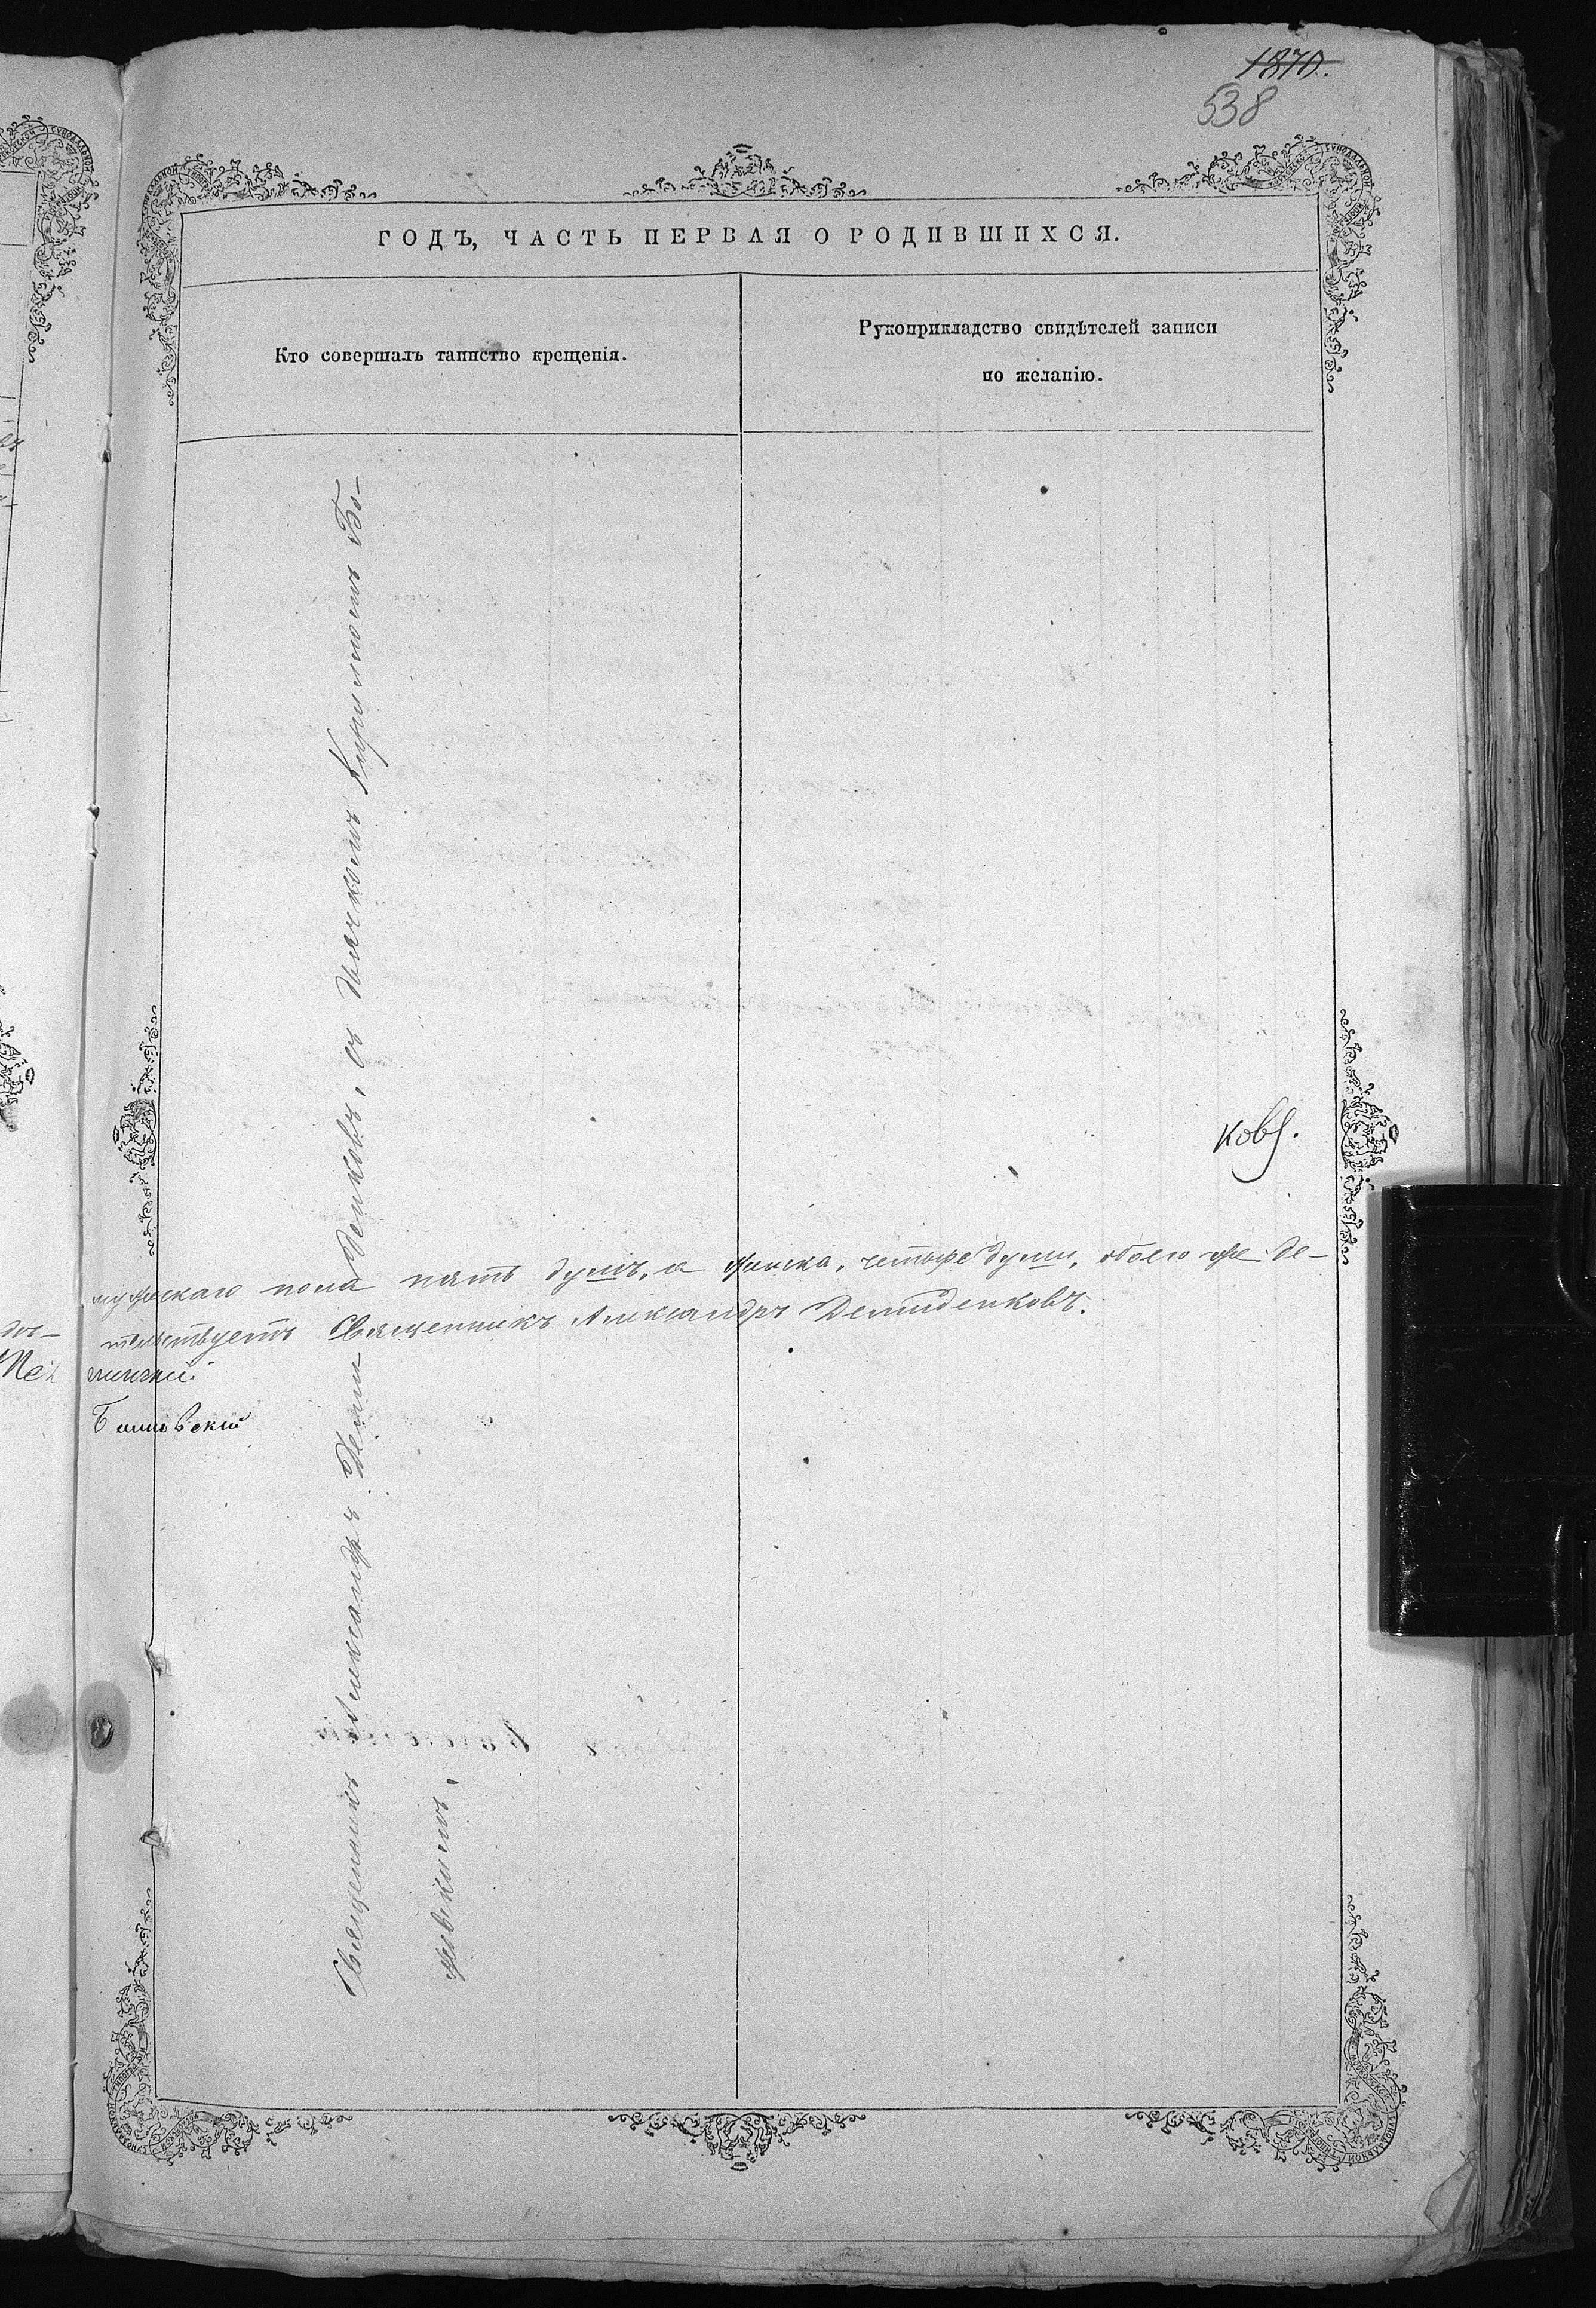 1870.
538
ГОДЪ, ЧАСТЬ ПЕРВАЯ О РОДИВШИХСЯ.
Кто совершалъ таинство крещенія.
Рукоприкладство свидѣтелей записи
по желанію.
Священникъ Александръ Деми
денковъ, съ дьячкомъ Кирилломъ Бо-
ковъ.
мужскаго пола пять душъ, а женска, четыре души, обоего же де-
тельствуетъ Священникъ Александръ Демиденковъ.